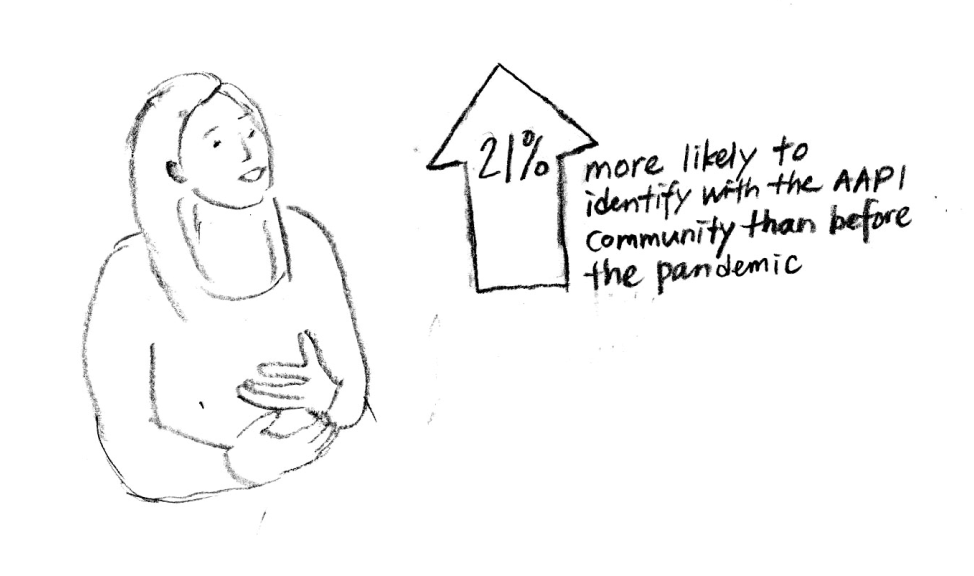 21%
more likely to
identify with the AAPI
community than before
the pandemic